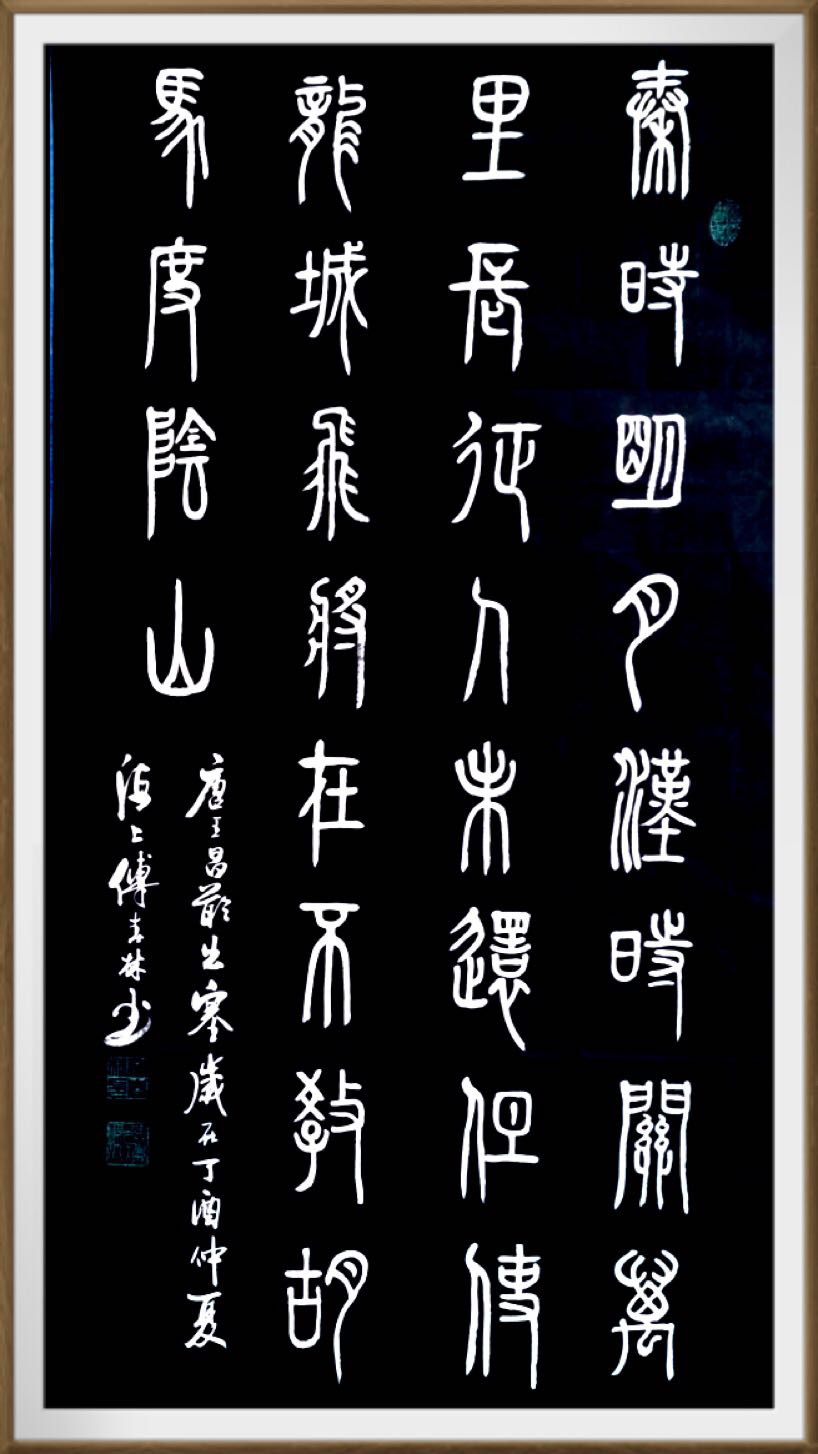 秦時明月漢時關萬
里長征人未還但使
龍城飛將在不敎胡
馬度陰山
唐王昌齡出塞歲在丁酉仲夏
海上傅林书